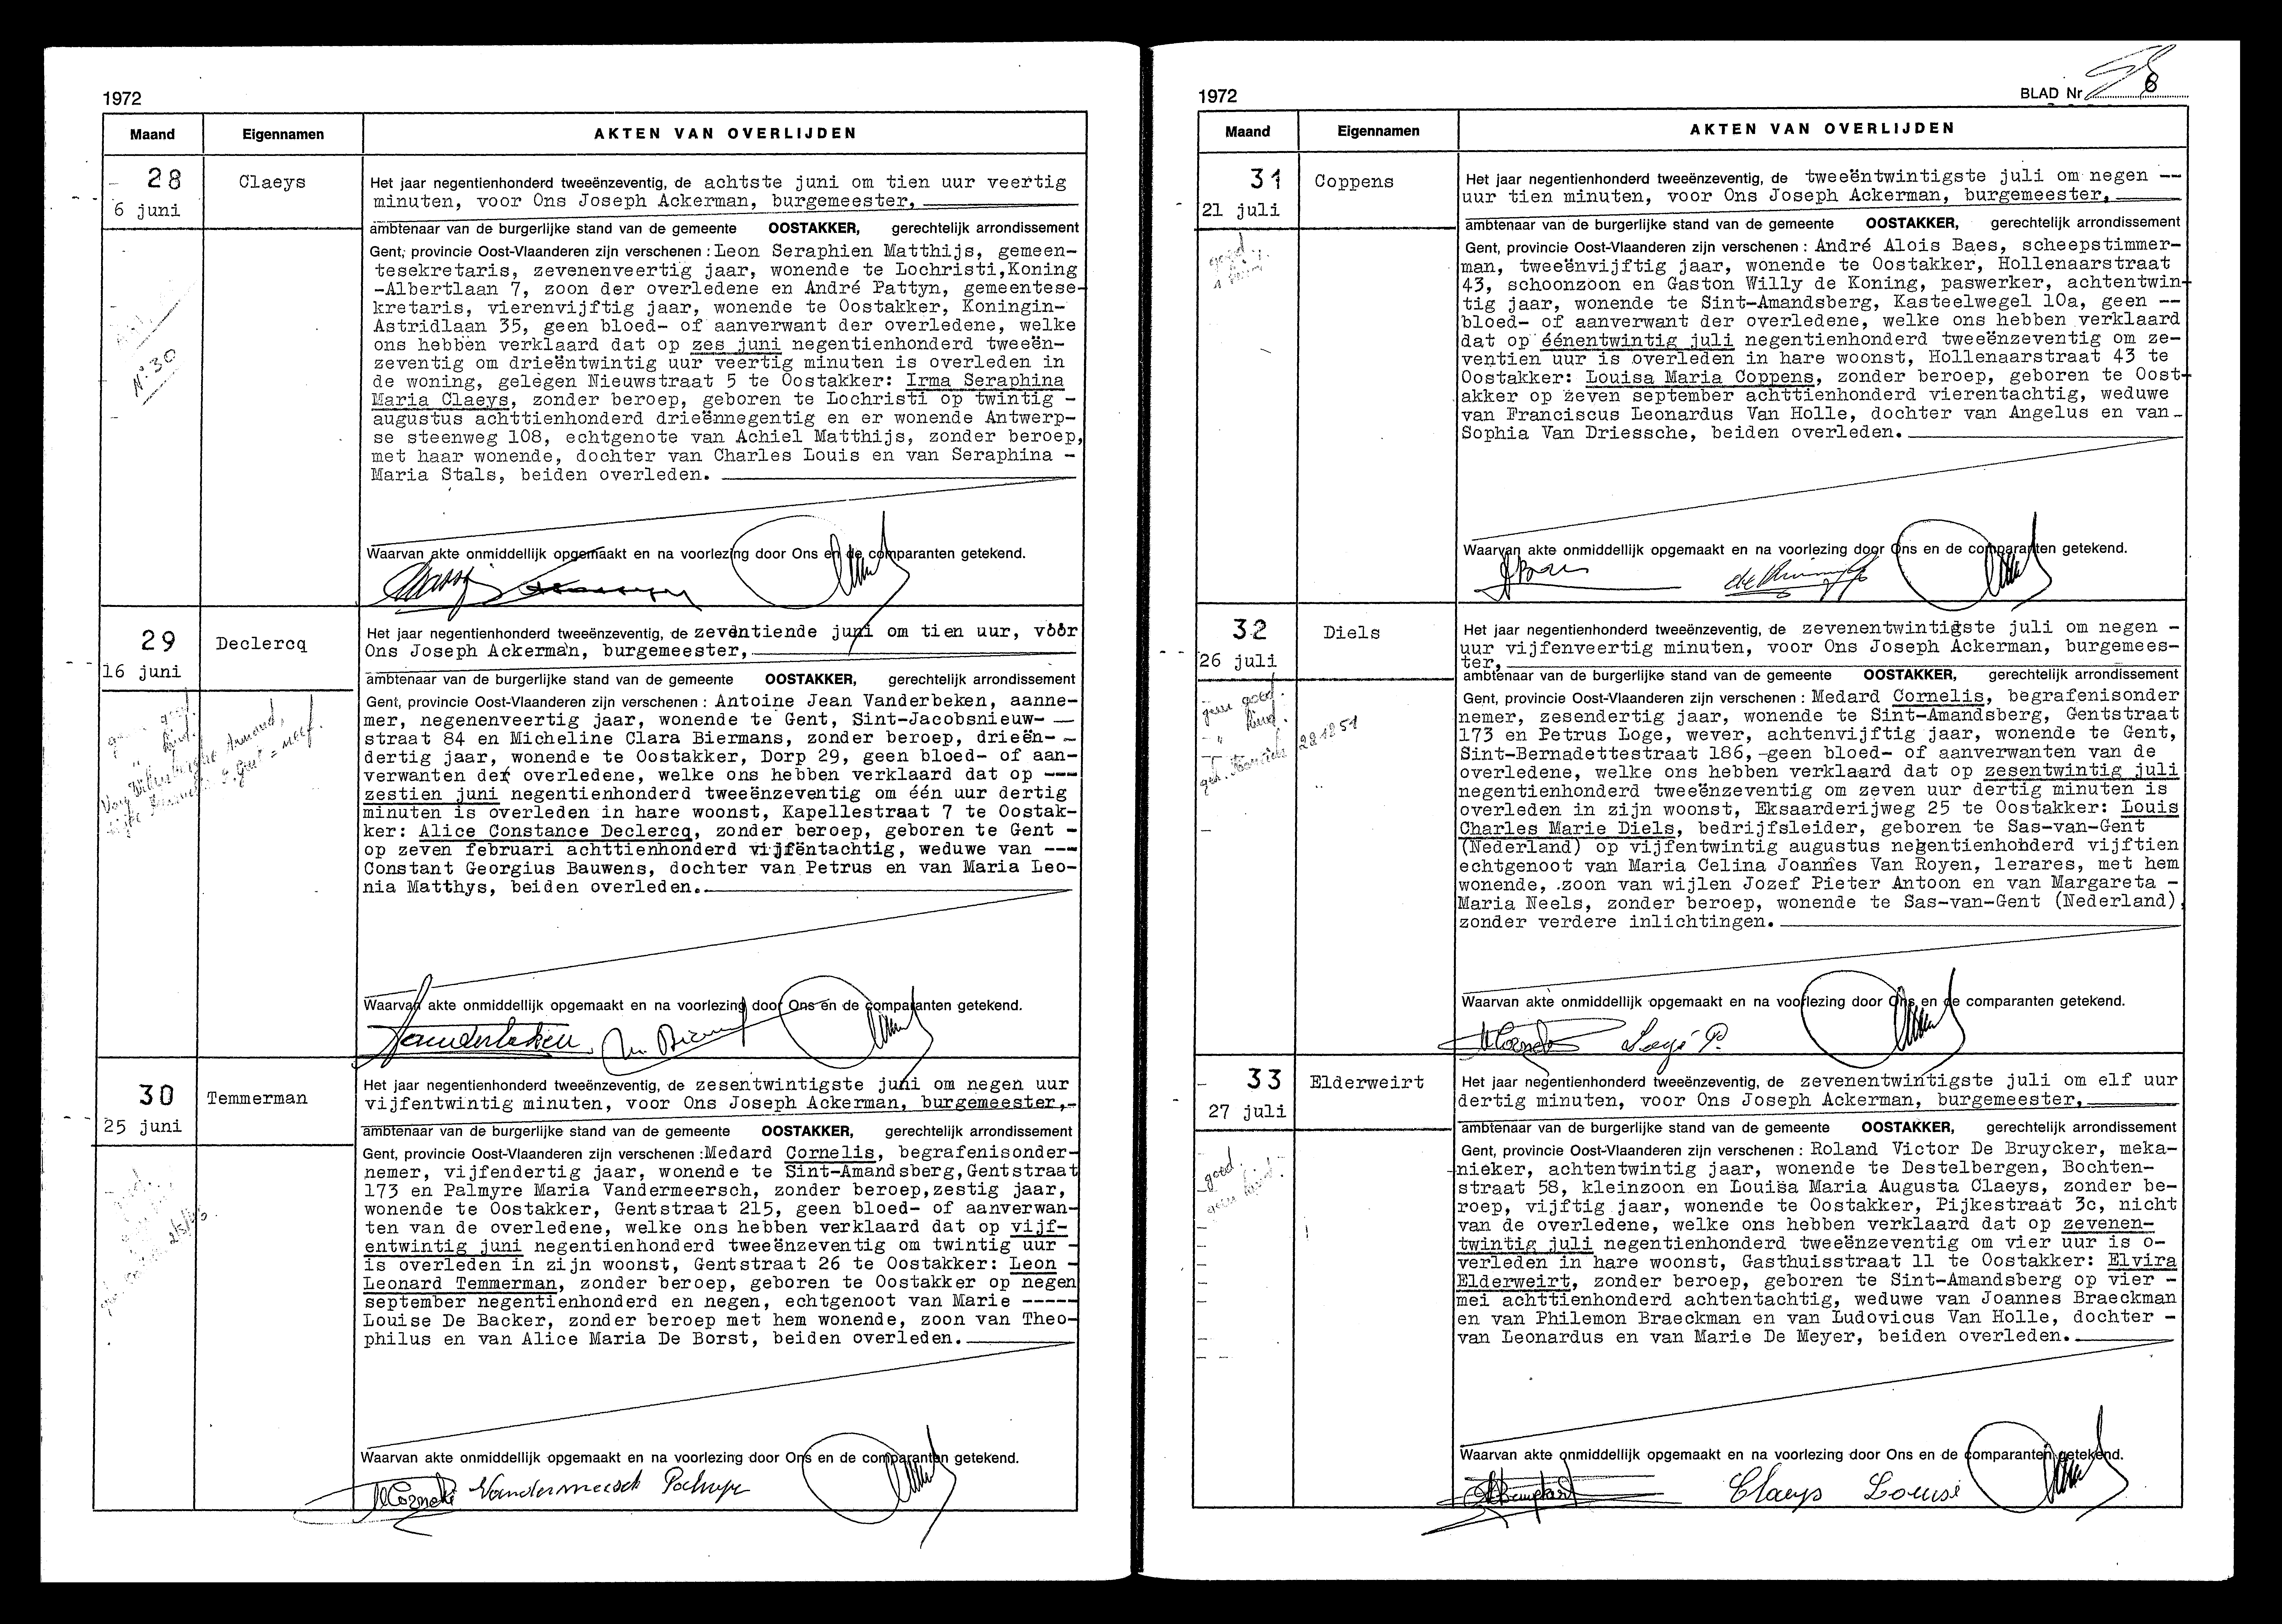 1972
Maand
Eigennamen
AKTEN VAN OVERLIJDEN
28
6 juni
Claeys
Het jaar negentienhonderd tweeënzeventig, de achtste juni om tien uur veertig
minuten, voor Ons Joseph Ackerman, burgemeester,
ambtenaar van de burgerlijke stand van de gemeente OOSTAKKER, gerechtelijk arrondissement
Gent, provincie Oost-Vlaanderen zijn verschenen : Leon Seraphien Matthijs, gemeen-
tesekretaris, zevenenveertig jaar, wonende te Lochristi,Koning
-Albertlaan 7, zoon der overledene en André Pattyn, gemeentese-
kretaris, vierenvijftig jaar, wonende te Oostakker, Koningin-
Astridlaan 35, geen bloed- of aanverwant der overledene, welke
ons hebben verklaard dat op zes juni negentienhonderd tweeën-
zeventig om drieëntwintig uur veertig minuten is overleden in
de woning, gelegen Nieuwstraat 5 te Oostakker: Irma Seraphina
Maria Claeys, zonder beroep, geboren te Lochristi op twintig -
augustus achttienhonderd drieënnegentig en er wonende Antwerp-
se steenweg 108, echtgenote van Achiel Matthijs, zonder beroep,
met haar wonende, dochter van Charles Louis en van Seraphina -
Maria Stals, beiden overleden.
N° 30
Waarvan akte onmiddellijk opgemaakt en na voorlezing door Ons en de comparanten getekend.
29
16 juni
Declercq
Het jaar negentienhonderd tweeënzeventig, de zeventiende juni om tien uur, vóór
Ons Joseph Ackerman, burgemeester,
ambtenaar van de burgerlijke stand van de gemeente OOSTAKKER, gerechtelijk arrondissement
Gent, provincie Oost-Vlaanderen zijn verschenen : Antoine Jean Vanderbeken, aanne-
mer, negenenveertig jaar, wonende te Gent, Sint-Jacobsnieuw- —
straat 84 en Micheline Clara Biermans, zonder beroep, drieën- -
dertig jaar, wonende te Oostakker, Dorp 29, geen bloed- of aan-
verwanten der overledene, welke ons hebben verklaard dat op ---
zestien juni negentienhonderd tweeënzeventig om één uur dertig
minuten is overleden in hare woonst, Kapellestraat 7 te Oostak-
ker: Alice Constance Declercq, zonder beroep, geboren te Gent -
op zeven februari achttienhonderd vijfëntachtig, weduwe van ---
Constant Georgius Bauwens, dochter van Petrus en van Maria Leo-
nia Matthys, beiden overleden.
Waarvan akte onmiddellijk opgemaakt en na voorlezing door Ons en de comparanten getekend.
Vanderbeken
30
25 juni
Temmerman
Het jaar negentienhonderd tweeënzeventig, de zesentwintigste juni om negen uur
vijfentwintig minuten, voor Ons Joseph Ackerman, burgemeester,-
ambtenaar van de burgerlijke stand van de gemeente OOSTAKKER, gerechtelijk arrondissement
Gent, provincie Oost-Vlaanderen zijn verschenen :Medard Cornelis, begrafenisonder-
nemer, vijfendertig jaar, wonende te Sint-Amandsberg,Gentstraat
173 en Palmyre Maria Vandermeersch, zonder beroep,zestig jaar,
wonende te Oostakker, Gentstraat 215, geen bloed- of aanverwan-
ten van de overledene, welke ons hebben verklaard dat op vijf-
entwintig juni negentienhonderd tweeënzeventig om twintig uur -
is overleden in zijn woonst, Gentstraat 26 te Oostakker: Leon -
Leonard Temmerman, zonder beroep, geboren te Oostakker op negen
september negentienhonderd en negen, echtgenoot van Marie -----
Louise De Backer, zonder beroep met hem wonende, zoon van Theo-
philus en van Alice Maria De Borst, beiden overleden.
Waarvan akte onmiddellijk opgemaakt en na voorlezing door Ons en de comparanten getekend.
1972
BLAD Nr 6
Maand
Eigennamen
AKTEN VAN OVERLIJDEN
31
21 juli
Coppens
Het jaar negentienhonderd tweeënzeventig, de tweeëntwintigste juli om negen --
uur tien minuten, voor Ons Joseph Ackerman, burgemeester,
ambtenaar van de burgerlijke stand van de gemeente OOSTAKKER, gerechtelijk arrondissement
Gent, provincie Oost-Vlaanderen zijn verschenen : André Alois Baes, scheepstimmer-
man, tweeënvijftig jaar, wonende te Oostakker, Hollenaarstraat
43, schoonzoon en Gaston Willy de Koning, paswerker, achtentwin-
tig jaar, wonende te Sint-Amandsberg, Kasteelwegel 10a, geen --
bloed- of aanverwant der overledene, welke ons hebben verklaard
dat op éénentwintig juli negentienhonderd tweeënzeventig om ze-
ventien uur is overleden in hare woonst, Hollenaarstraat 43 te
Oostakker: Louisa Maria Coppens, zonder beroep, geboren te Oost-
akker op zeven september achttienhonderd vierentachtig, weduwe
van Franciscus Leonardus Van Holle, dochter van Angelus en van -
Sophia Van Driessche, beiden overleden.
Waarvan akte onmiddellijk opgemaakt en na voorlezing door Ons en de comparanten getekend.
32
26 juli
Diels
Het jaar negentienhonderd tweeënzeventig, de zevenentwintigste juli om negen -
uur vijfenveertig minuten, voor Ons Joseph Ackerman, burgemees-
ter,
ambtenaar van de burgerlijke stand van de gemeente OOSTAKKER, gerechtelijk arrondissement
Gent, provincie Oost-Vlaanderen zijn verschenen : Medard Cornelis, begrafenisonder
nemer, zesendertig jaar, wonende te Sint-Amandsberg, Gentstraat
173 en Petrus Loge, wever, achtenvijftig jaar, wonende te Gent,
Sint-Bernadettestraat 186,-geen bloed- of aanverwanten van de
overledene, welke ons hebben verklaard dat op zesentwintig juli
negentienhonderd tweeënzeventig om zeven uur dertig minuten is
overleden in zijn woonst, Eksaarderijweg 25 te Oostakker: Louis
Charles Marie Diels, bedrijfsleider, geboren te Sas-van-Gent
(Nederland) op vijfentwintig augustus negentienhonderd vijftien
echtgenoot van Maria Celina Joannes Van Royen, lerares, met hem
wonende, .zoon van wijlen Jozef Pieter Antoon en van Margareta -
Maria Neels, zonder beroep, wonende te Sas-van-Gent (Nederland),
zonder verdere inlichtingen.
Waarvan akte onmiddellijk opgemaakt en na voorlezing door Ons en de comparanten getekend.
33
27 juli
Elderweirt
Het jaar negentienhonderd tweeënzeventig, de zevenentwintigste juli om elf uur
dertig minuten, voor Ons Joseph Ackerman, burgemeester,
ambtenaar van de burgerlijke stand van de gemeente OOSTAKKER, gerechtelijk arrondissement
Gent, provincie Oost-Vlaanderen zijn verschenen : Roland Victor De Bruycker, meka-
nieker, achtentwintig jaar, wonende te Destelbergen, Bochten-
straat 58, kleinzoon en Louisa Maria Augusta Claeys, zonder be-
roep, vijftig jaar, wonende te Oostakker, Pijkestraat 3c, nicht
van de overledene, welke ons hebben verklaard dat op zevenen-
twintig juli negentienhonderd tweeënzeventig om vier uur is o-
verleden in hare woonst, Gasthuisstraat 11 te Oostakker: Elvira
Elderweirt, zonder beroep, geboren te Sint-Amandsberg op vier -
mei achttienhonderd achtentachtig, weduwe van Joannes Braeckman
en van Philemon Braeckman en van Ludovicus Van Holle, dochter -
van Leonardus en van Marie De Meyer, beiden overleden.
Waarvan akte onmiddellijk opgemaakt en na voorlezing door Ons en de comparanten getekend.
Claeys Louise